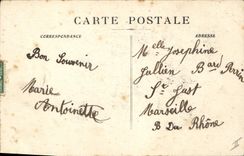 CARTE POSTALE
CORRESPONDANCE
ADRESSE
Bon Souvenir
Marie
Antoinette
Melle Josephine
Jullien Bard
St Just
Marseille
B Du Rhône